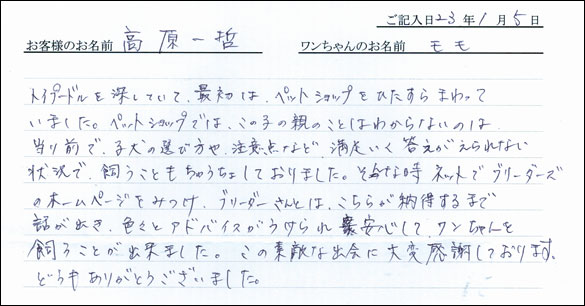 ご記入日23年1月5日
お客様のお名前 高原一哲 ワンちゃんのお名前 モモ
トイプードルを探していて、最初は、ペットショップをひたすらまわって
いました。ペットショップでは、この子の親のことはわからないのは
当り前で、子犬の選び方や、注意点など、満足いく答えがえられない
状況で、飼うこともちゅうちょしておりました。そんな時ネットでブリーダーズ
のホームページをみつけ、ブリーダーさんとは、こちらが納得するまで
話が出き、色々とアドバイスがうけられ 安心して、ワンちゃんを
飼うことが出来ました。この素敵な出会に大変感謝しております。
どうもありがとうございました。